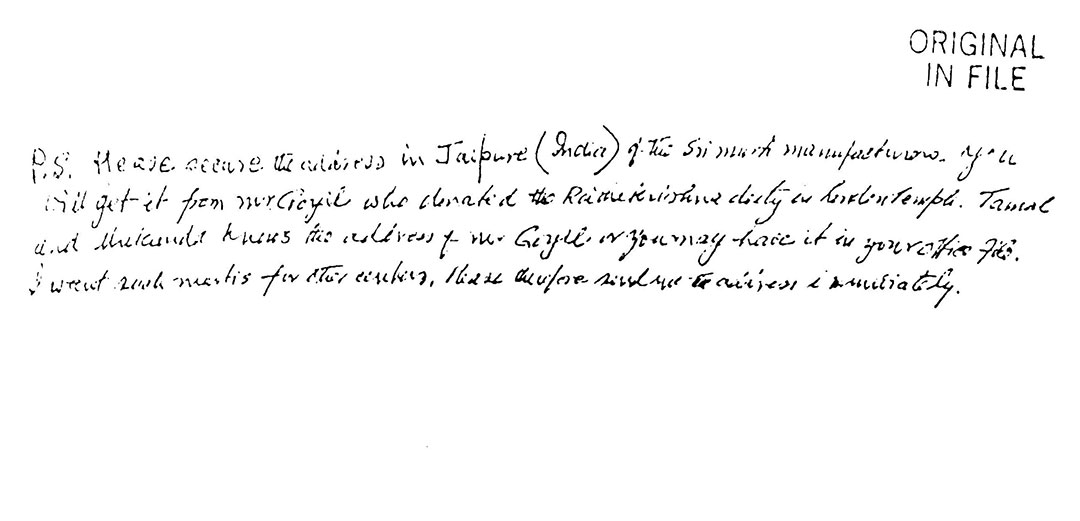 ORIGINAL
IN FILE
P.S. Please secure the address in Jaipure (India) of the Sri murti manufacturers. You
will get it from mr Goyil who donated the Radhakrishna deity in London temple. Tamal
and Mukunda knows the address of mr Goyil or you may have it in your office file.
I want such murtis for other centers, Please therefore send me the address immediately.